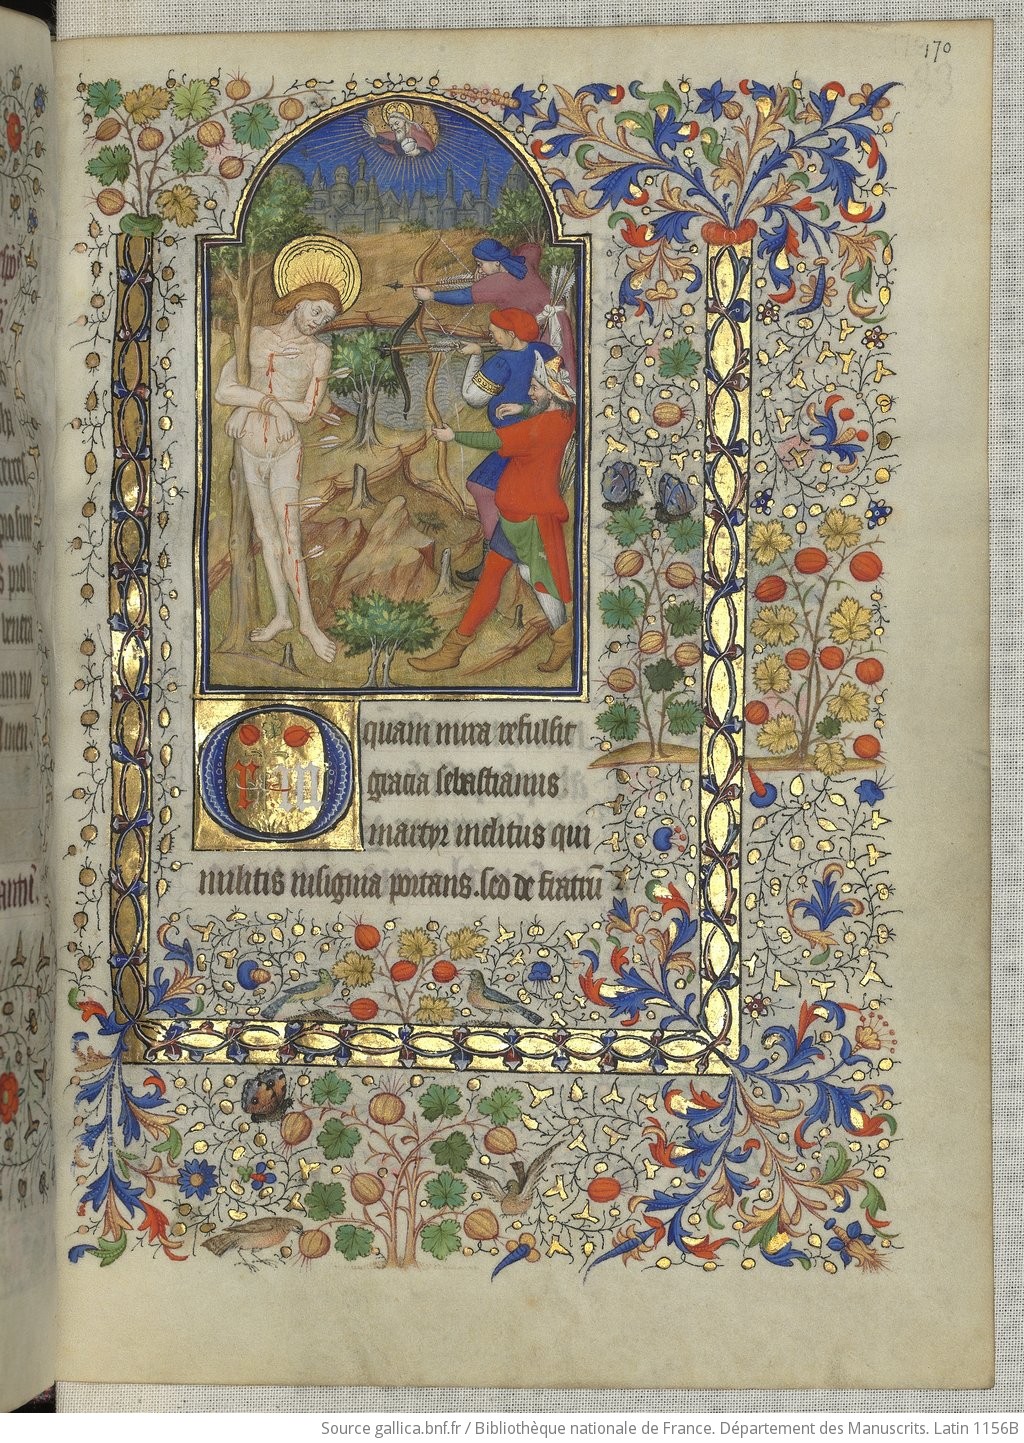 170
O quam mira refulsit
gracia sebastianus
martyr inclitus qui
militis insignia portans. sed de fratrū
p m
Source gallica.bnf.fr / Bibliothèque nationale de France. Département des Manuscrits. Latin 1156B